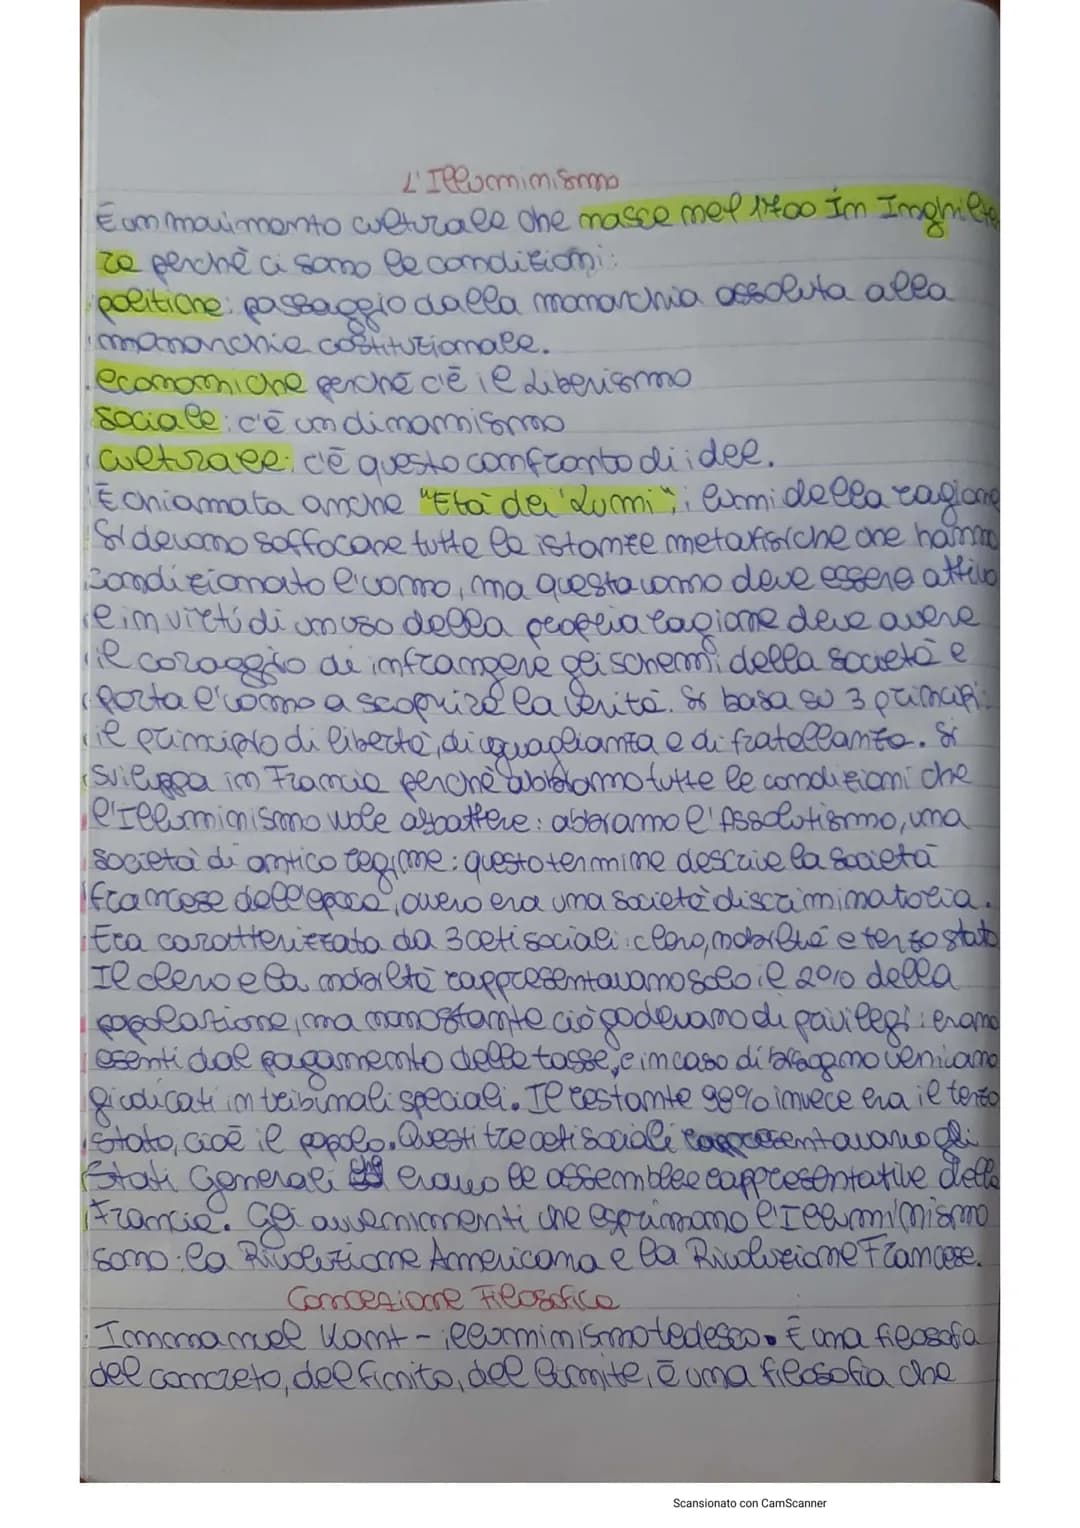 L'Illuminismo
È un movimento culturale che nasce nel 1700 in Inghilter
ra perchè ci sono le condizioni:
politiche: passaggio dalla monarchia assoluta alla
monarchia costituzionale.
economiche perchè c'è il Liberismo
sociale: c'è un dinamismo
culturale: c'è questo confronto di idee.
È chiamata anche "Età dei Lumi"; i lumi della ragione
Si devono soffocare tutte le istanze metafisiche che hanno
condizionato l'uomo, ma questo uomo deve essere attivo
e in virtù di un uso della propria ragione deve avere
il coraggio di infrangere gli schemi della società e
porta l'uomo a scoprire la verità. Si basa su 3 principi:
il principio di libertà, di uguaglianza e di fratellanza. Si
sviluppa in Francia perchè abbiamo tutte le condizioni che
l'Illuminismo vole abbattere: abbiamo l'Assolutismo, una
società di antico regime: questo termine descrive la società
francese dell'epoca, ovvero era una società discriminatoria.
Era caratterizzata da 3 ceti sociali: clero, nobiltà e terzo stato
Il clero e la nobiltà rappresentavano solo il 2% della
popolazione, ma nonostante ciò godevano di privilegi: erano
esenti dal pagamento delle tasse, e in caso di bisogno venivano
giudicati in tribunali speciali. Il restante 98% invece era il terzo
stato, cioè il popolo. Questi tre ceti sociali rappresentavano gli
Stati Generali erano le assemblee rappresentative della
Francia. Gli avvenimenti che esprimono l'Illuminismo
sono: la Rivoluzione Americana e la Rivoluzione Francese.
Concezione Filosofica
Immanuel Kant - illuminismo tedesco. È una filosofia
del concreto, del finito, del limite, è una filosofia che
Scansionato con CamScanner